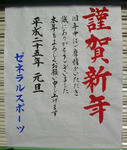 謹賀新年
旧年中はご愛顧いただき
誠にありがとうございました
本年もよろしくお願い申し上げます
平成二十五年 元旦
ゼネラルスポーツ